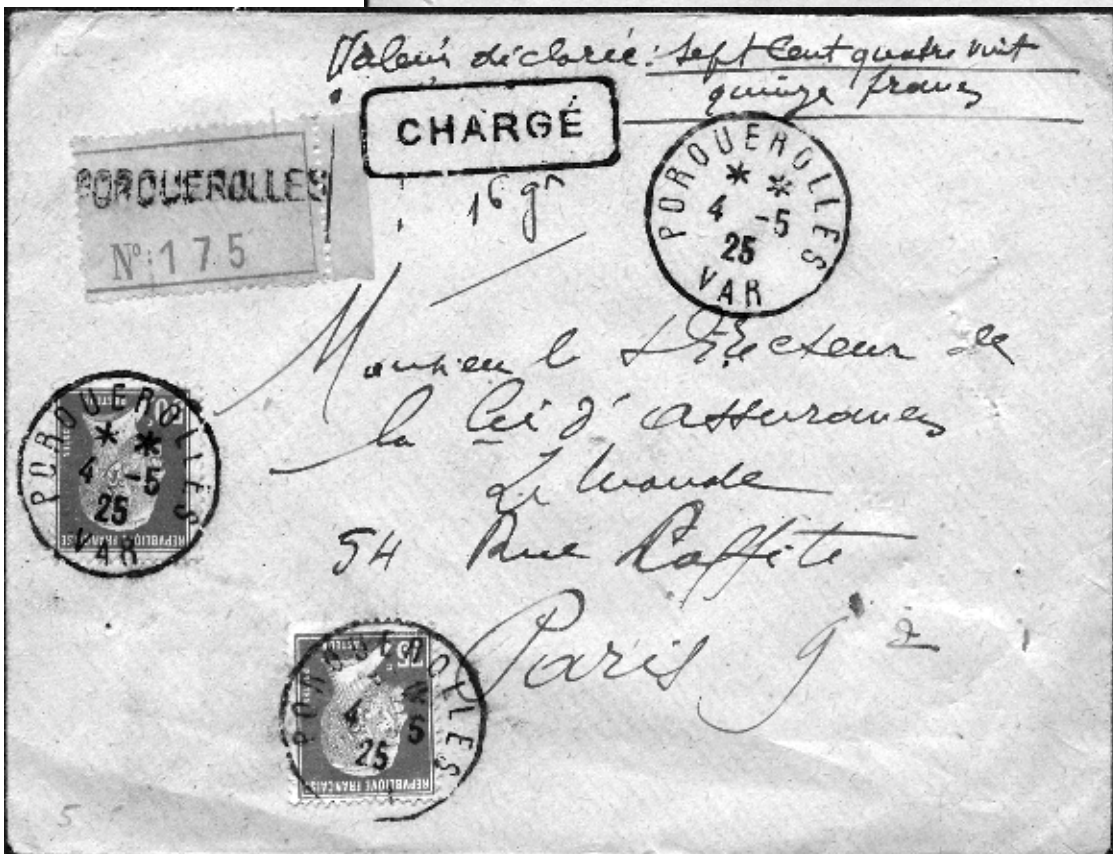 Valeur déclarée: Sept Cent quatre vint
quinze francs
CHARGÉ
PORQUEROLLES
N° 175
16 gr
PORQUEROLLES
4 -5
25
VAR
Monsieur le Directeur de
la Cie d'assurances
Le Monde
54 Rue Laffite
Paris 9e
PORQUEROLLES
4 -5
25
VAR
REPUBLIQUE FRANÇAISE
PORQUEROLLES
4 5
25
75
REPUBLIQUE FRANÇAISE
5